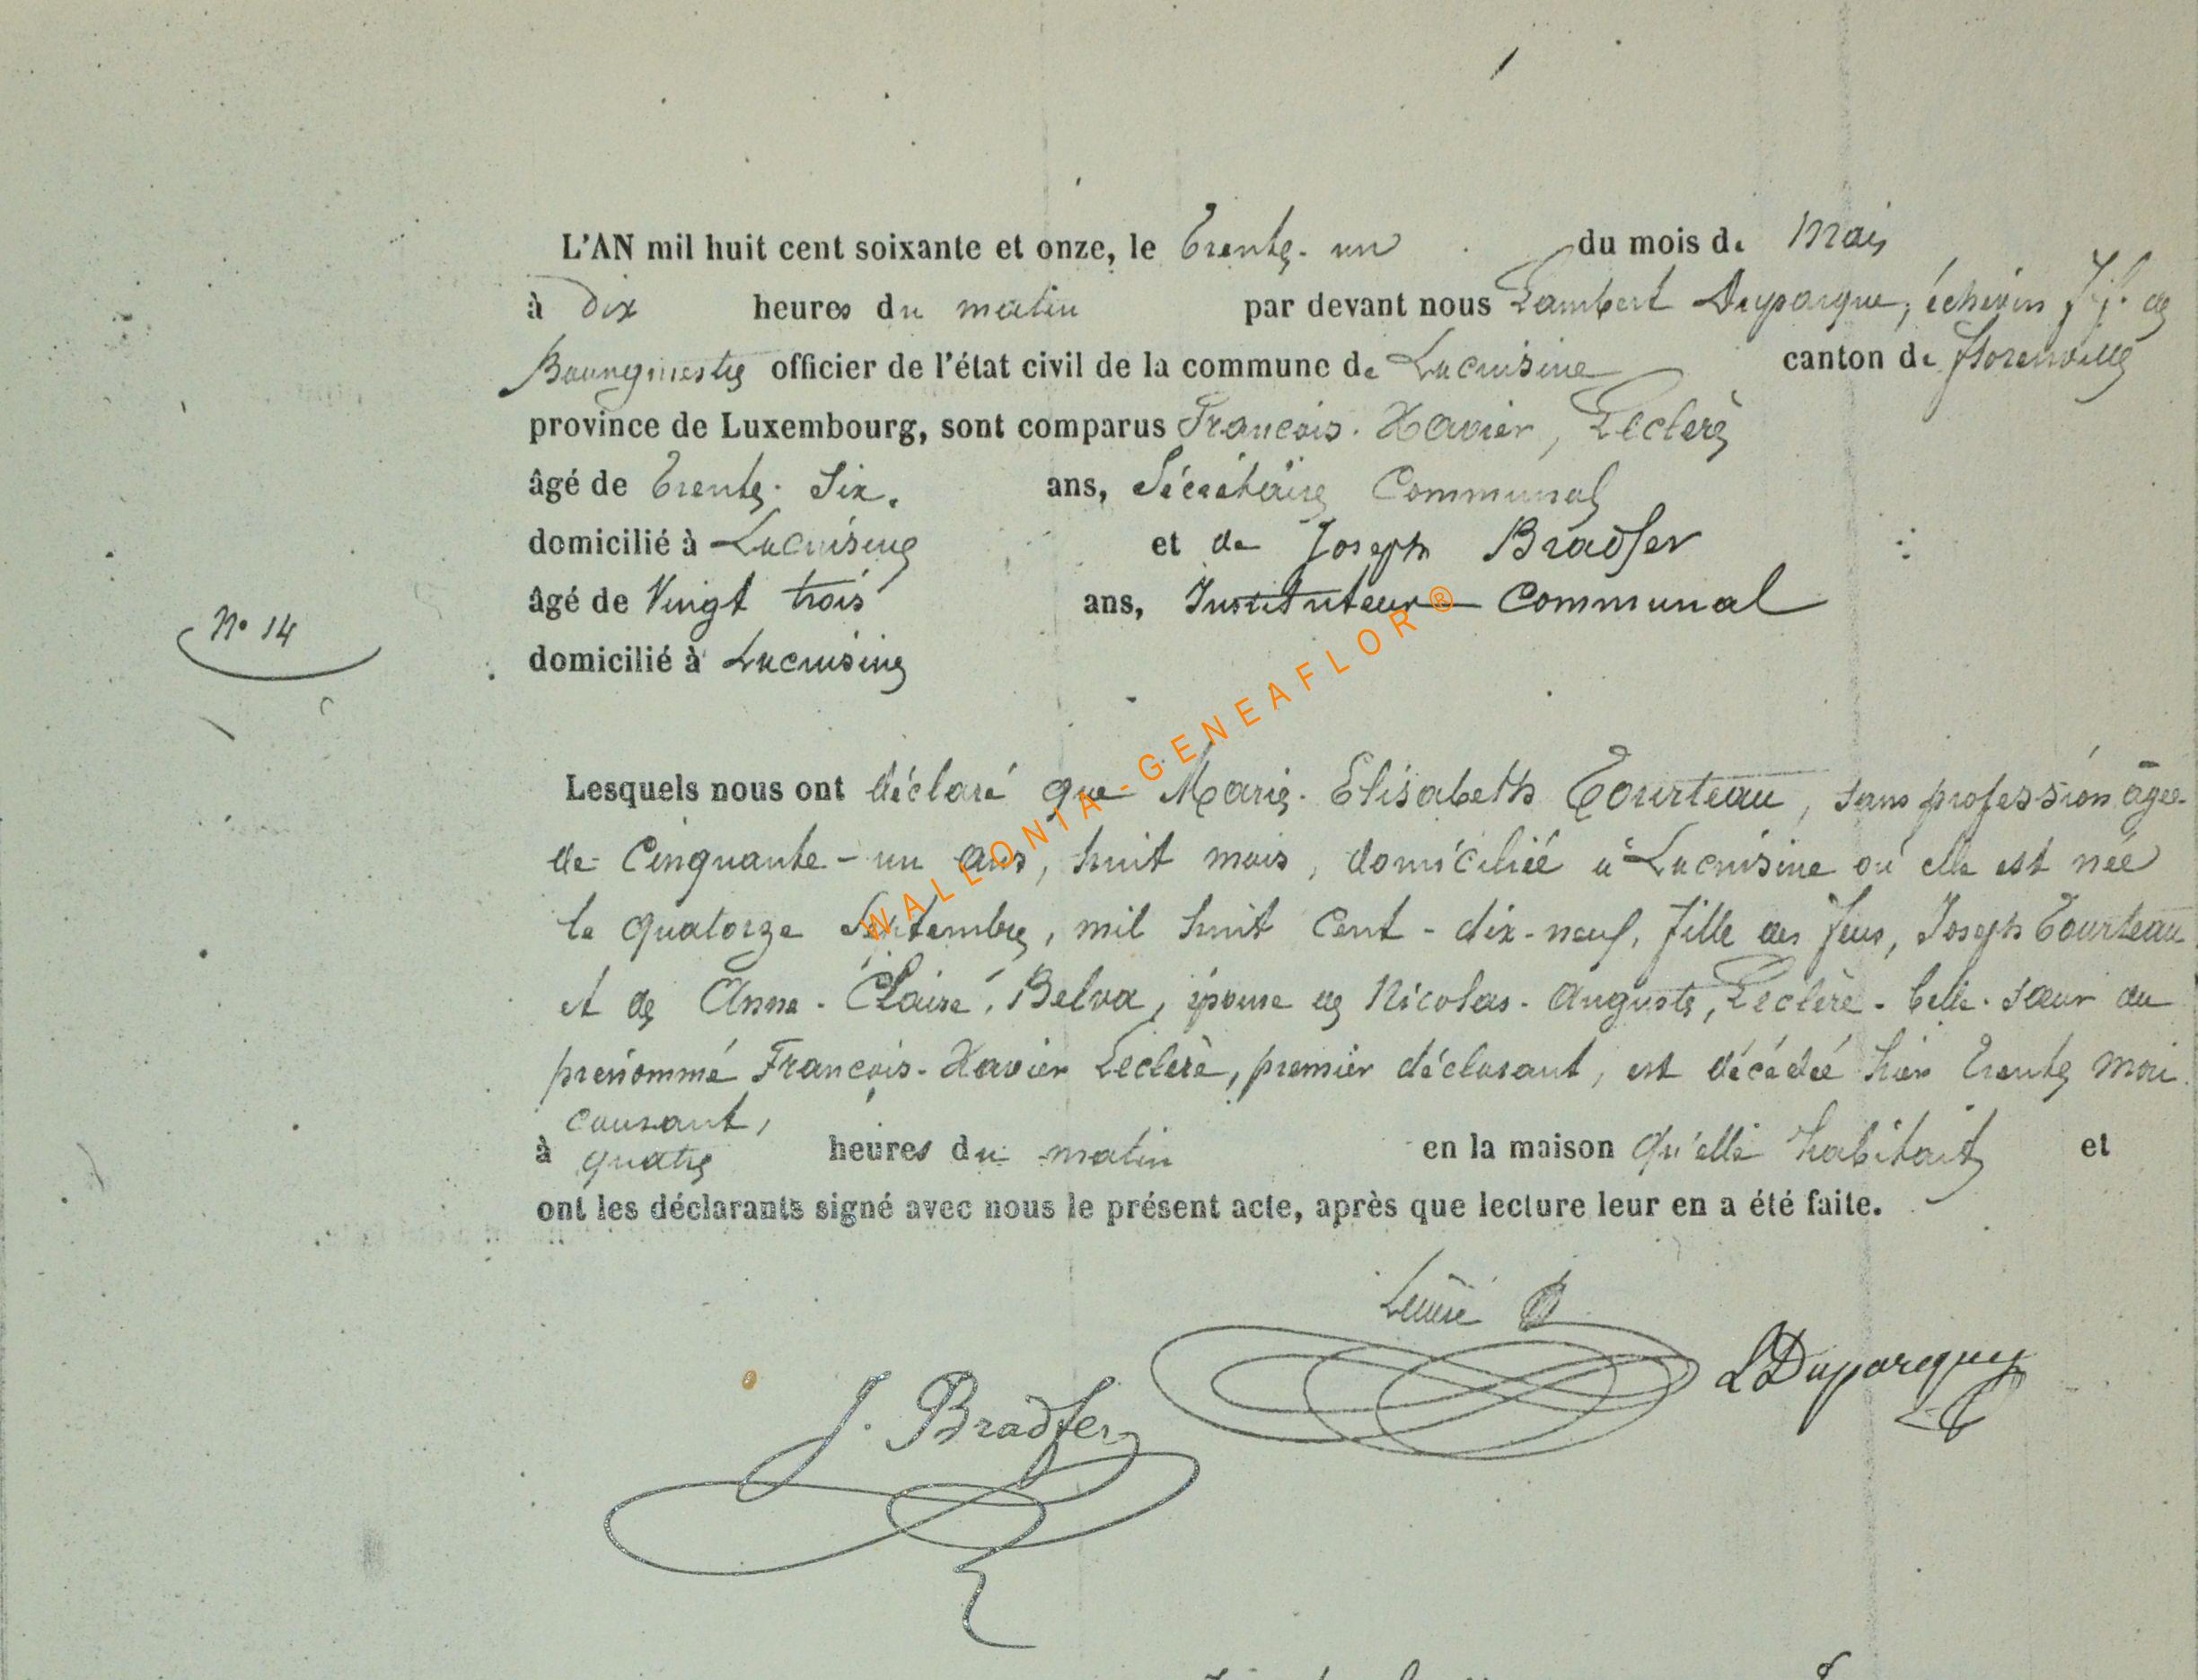 L'AN mil huit cent soixante et onze, le Trente-un du mois de Mai,
à Dix heures du matin par devant nous Lambert Duparque, échevin f f. de
Bourgmestre officier de l'état civil de la commune de Lacuisine canton de Florenville
province de Luxembourg, sont comparus François-Xavier, Leclère
âgé de Trente-Six. ans, Sécrétaire Communal
domicilié à Lacuisine et de Joseph Bradfer
âgé de Vingt trois ans, Instituteur Communal
N° 14
domicilié à Lacuisine
Lesquels nous ont déclaré que Marie-Elisabeth Tourteau, sans profession âgée
de Cinquante-un ans, huit mois, domiciliée à Lacuisine où elle est née
le quatorze Septembre, mil huit Cent-dix-neuf, fille des feus, Joseph Tourteau
et de Anne-Claire, Belva, épouse de Nicolas-Auguste, Leclère-belle-sœur du
prénommé François-Xavier Leclère, premier déclarant, est décédée hier trente mai
courant,
à quatre heures du matin en la maison qu'elle habitait et
ont les déclarants signé avec nous le présent acte, après que lecture leur en a été faite.
LDuparque
J. Bradfer
WALLONIA-GENEAFLOR®